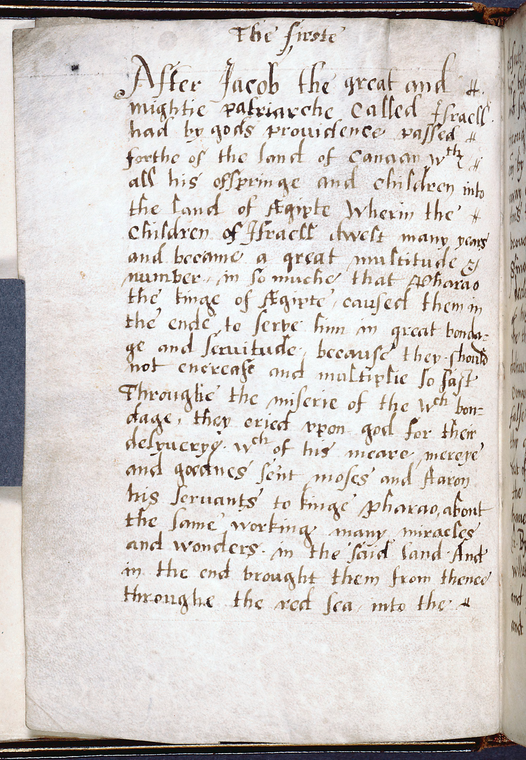 The firste
After Jacob the great and
mightie patriarche called Israell
had by gods providence passed
forthe of the land of Canaan wth
all his offspringe and children into
the land of Ægipte wherin the
children of Israell dwelt many years
and became a great multitude &
number, in so muche that Pharao
the kinge of Ægipte caused them in
the ende to serve him in great bonda-
ge and servitude, because they should
not encrease and multiplie so fast
Throughe the miserie of the wch bon=
dage, they cried vpon god for their
delyverye. wch of his meare mercye
and goodnes sent moses and Aaron
his servants to kinge Pharao, about
the same working many miracles
and wonders. in the said land. And
in the end brought them from thence
throughe the red sea into the